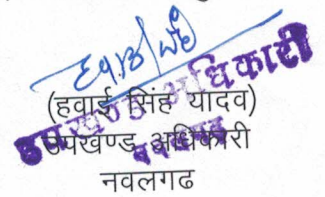 (हवाई सिंह यादव)
उपखण्ड अधिकारी
नवलगढ
उपखण्ड अधिकारी